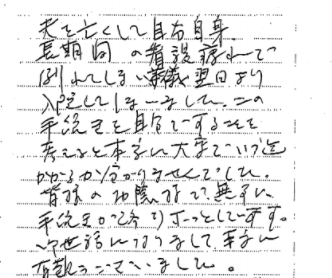 夫を亡くして自分自身、
長期間の看護疲れで
倒れてしまい葬儀翌日より
入院してしまいました。この
手続きを自分ですることを
考えると本当に大変でいつ迄
かかるか分かりませんでした。
皆様のお陰様で無事に
手続きが終りホッとしています。
お世話になりまして本当に
有難うございました。